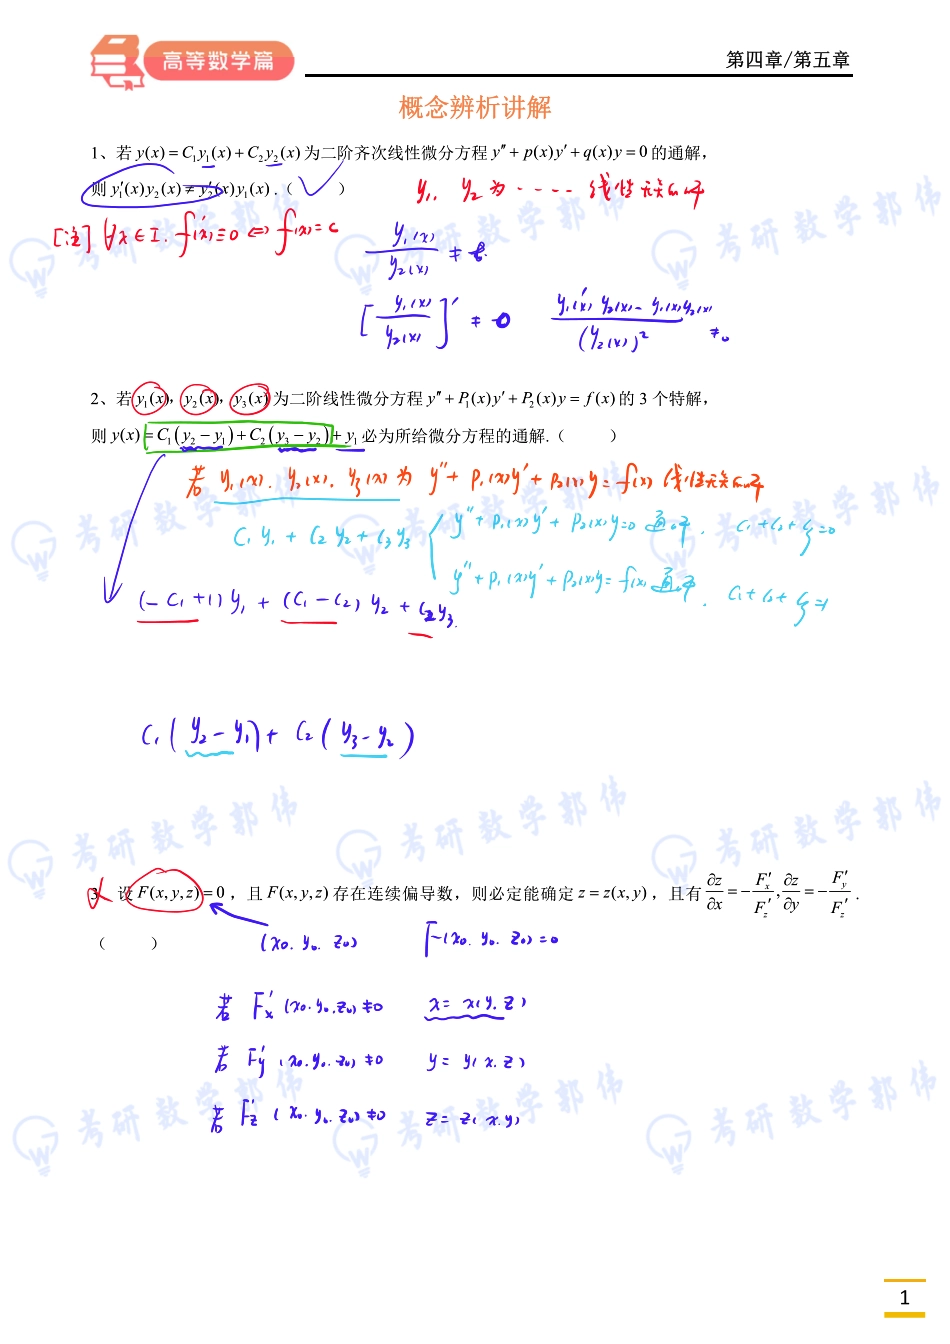 高等数学篇
第四章/第五章
概念辨析讲解
1、若 y(x) = C₁y₁(x) + C₂y₂(x) 为二阶齐次线性微分方程 y″ + p(x)y′ + q(x)y = 0 的通解，
则 y₁′(x)y₂(x) ≠ y₂′(x)y₁(x) .（ ✓ ）
y₁, y₂ 为 ···· 线性无关的解
[注] ∀x∈I. f′(x)≡0 ⇔ f(x)=c
y₁(x)/y₂(x) ≠ c.
[y₁(x)/y₂(x)]′ ≠ 0
(y₁′(x) y₂(x) - y₁(x)y₂′(x))/(y₂(x))² ≠0
2、若 y₁(x)，y₂(x)，y₃(x) 为二阶线性微分方程 y″ + P₁(x)y′ + P₂(x)y = f(x) 的 3 个特解，
则 y(x) = C₁(y₂ − y₁) + C₂(y₃ − y₂) + y₁ 必为所给微分方程的通解.（ ）
若 y₁(x). y₂(x). y₃(x) 为 y″+ P₁(x)y′+ P₂(x)y = f(x) 线性无关的解
C₁y₁ + C₂y₂ + C₃y₃
y″+ P₁(x)y′+ P₂(x)y=0 通解. C₁+C₂+C₃=0
y″+P₁(x)y′+P₂(x)y= f(x) 通解. C₁+C₂+C₃=1
(-C₁+1)y₁ + (C₁-C₂)y₂ + C₂y₃.
C₁(y₂-y₁)+ C₂(y₃-y₂)
3、设 F(x, y, z) = 0，且 F(x, y, z) 存在连续偏导数，则必定能确定 z = z(x, y)，且有 ∂z/∂x = −F′x/F′z , ∂z/∂y = −F′y/F′z .
（ ）
(x₀. y₀. z₀) F(x₀. y₀. z₀)=0
若 F′x(x₀.y₀.z₀)≠0 x= x(y.z)
若 F′y(x₀.y₀.z₀)≠0 y= y(x.z)
若 F′z(x₀.y₀.z₀)≠0 z= z(x.y)
考研数学郭伟
考研数学郭伟
考研数学郭伟
考研数学郭伟
考研数学郭伟
考研数学郭伟
考研数学郭伟
考研数学郭伟
考研数学郭伟
考研数学郭伟
考研数学郭伟
考研数学郭伟
1